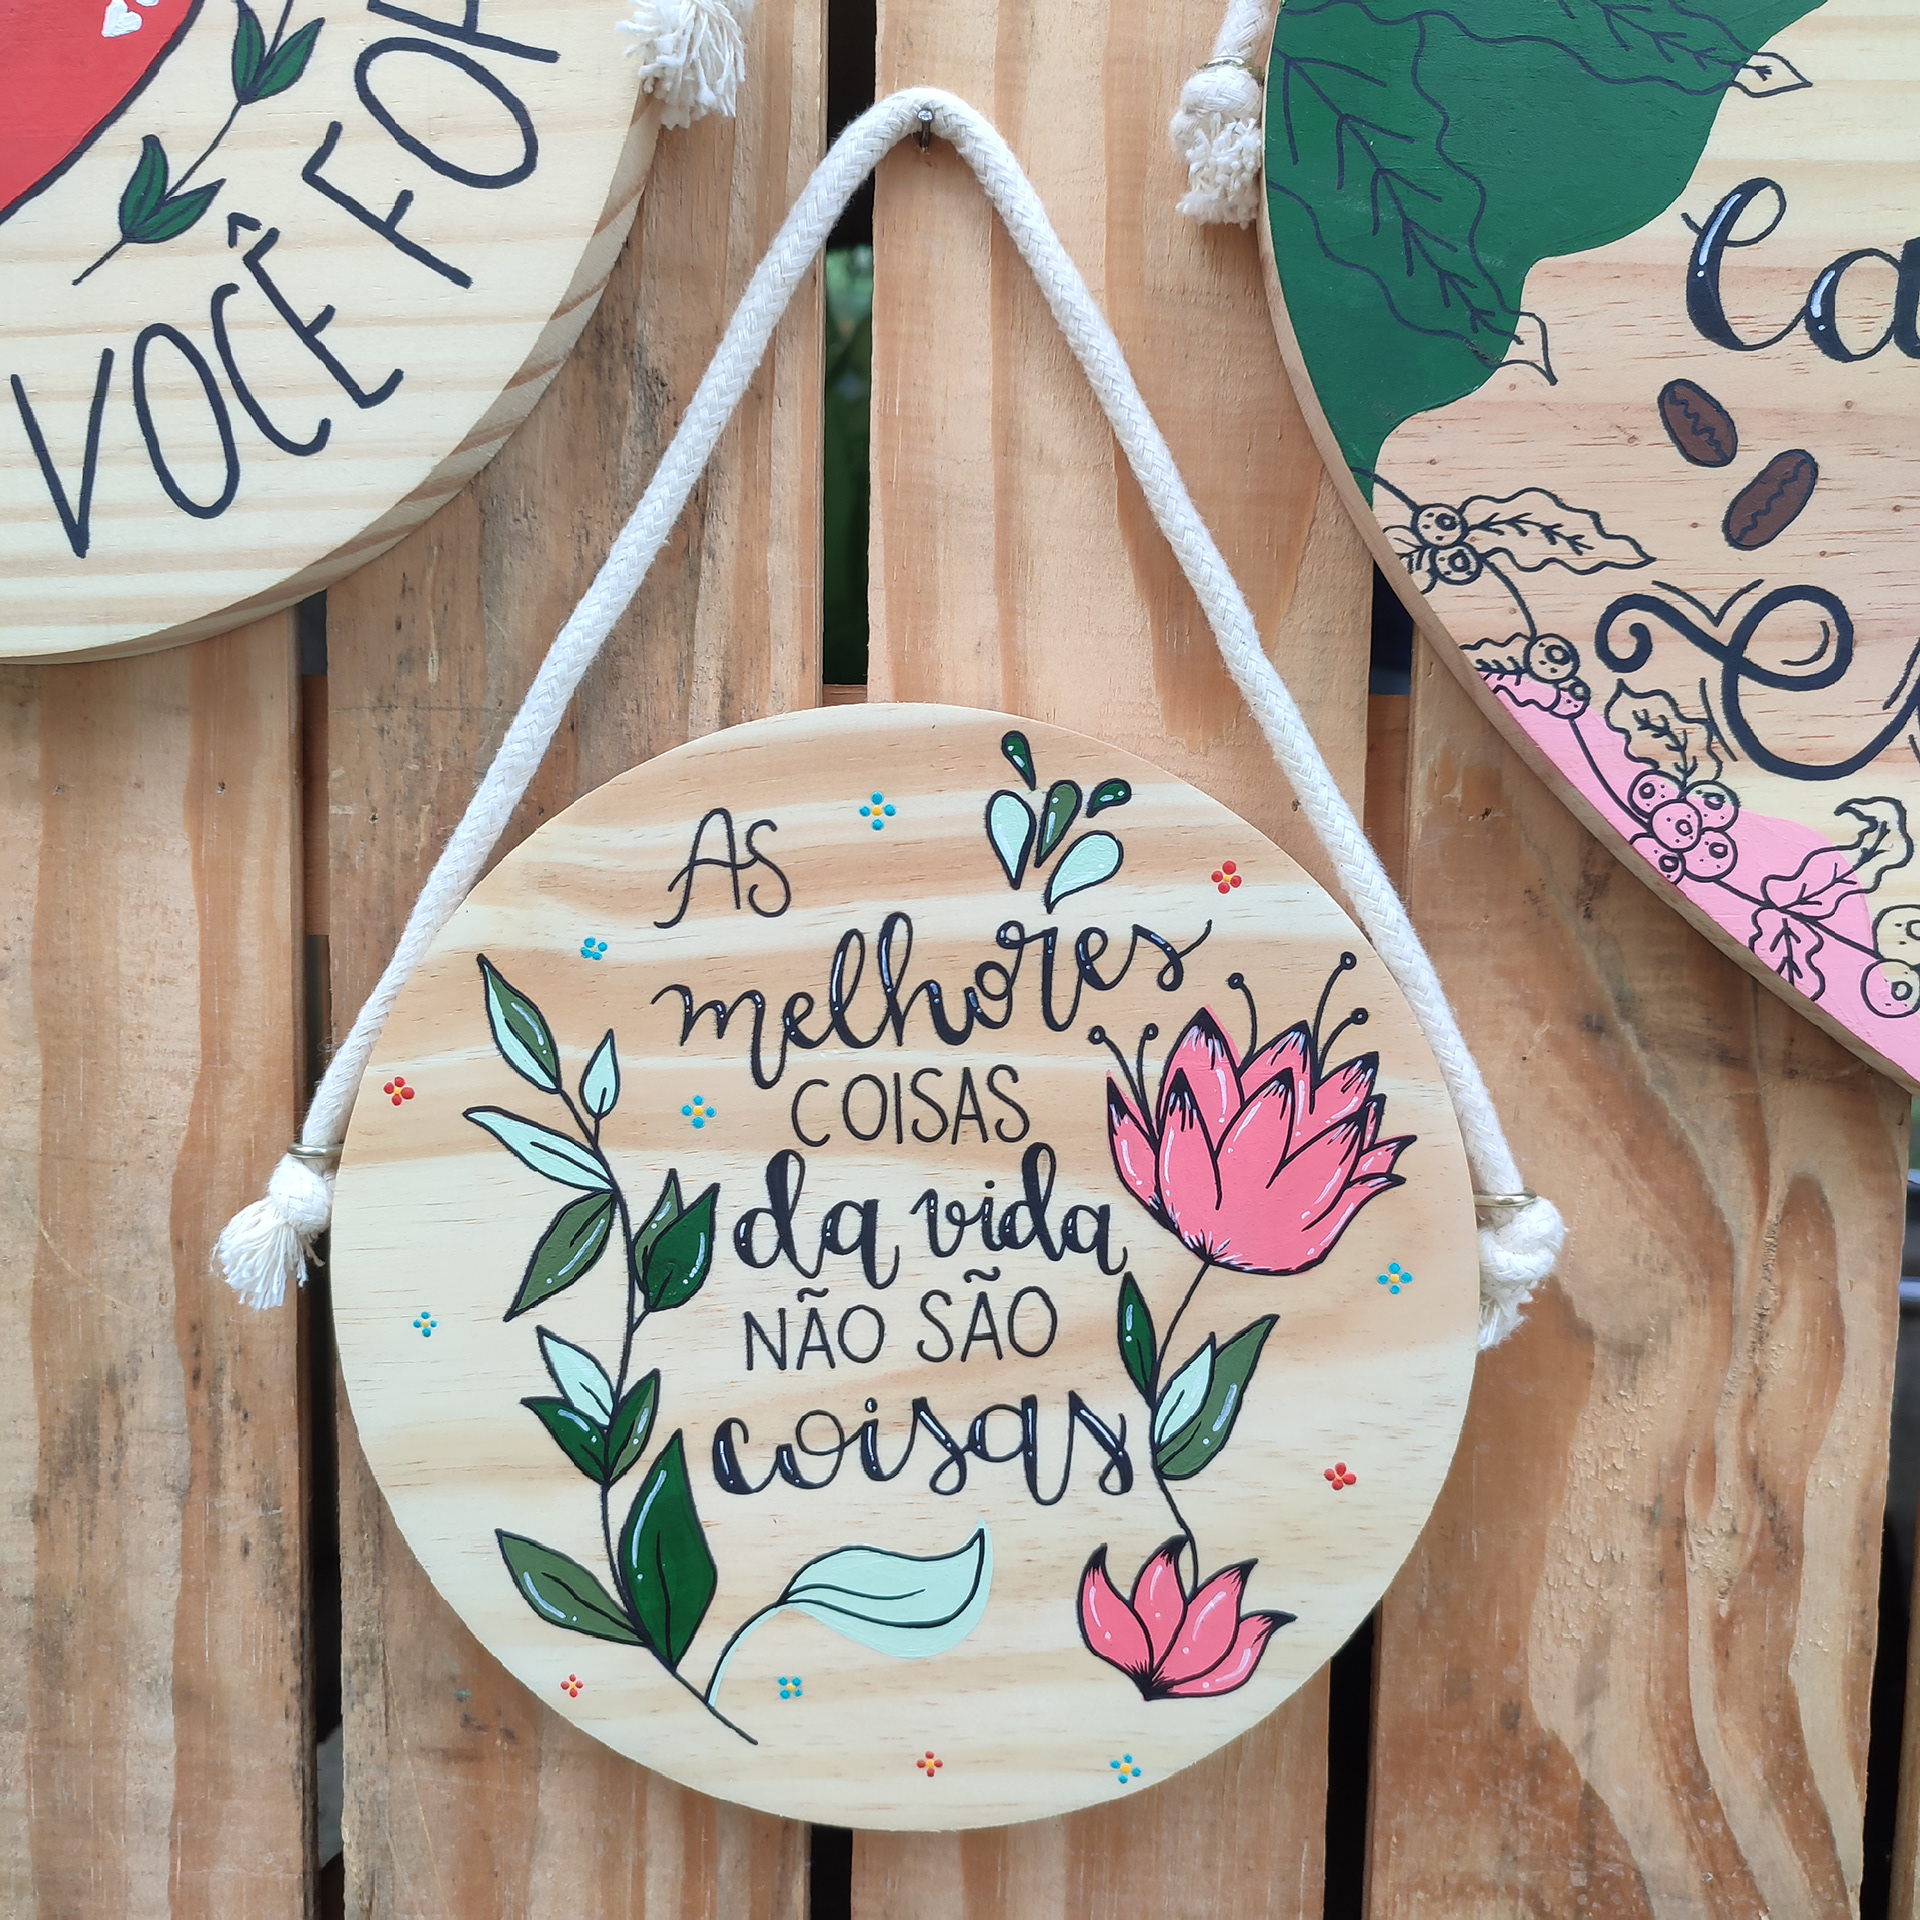 VOCÊ FOR
Ca
As
melhores
COISAS
da vida
NÃO SÃO
coisas